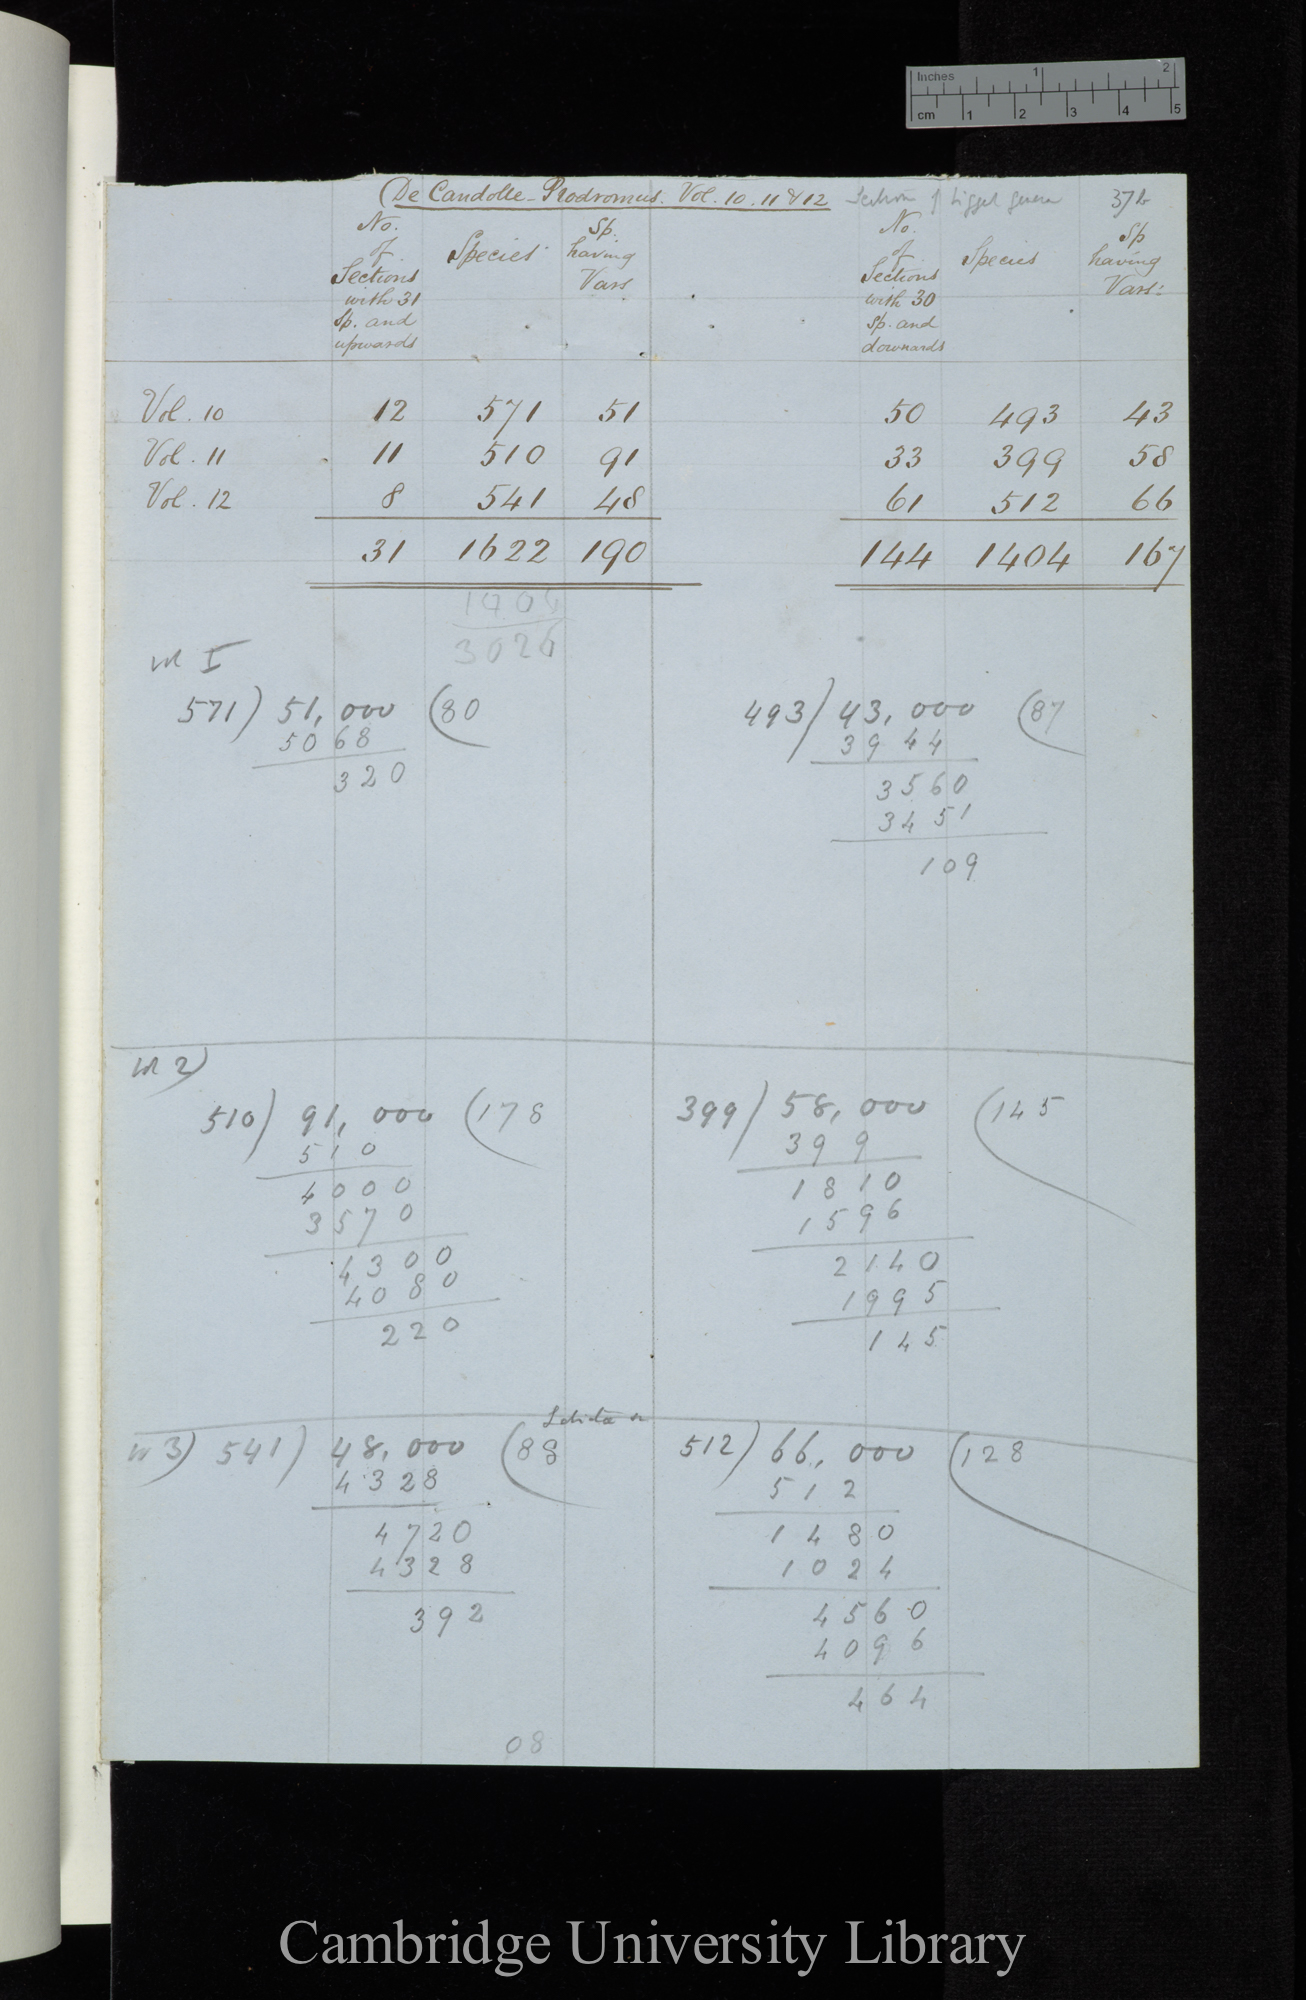 Inches 1 2
cm 1 2 3 4 5
De Candolle - Prodromus. Vol. 10. 11 & 12 Section of biggest genera 37b
No. of Sections with 31 Sp. and upwards | Species | Sp. having Vars | No. of Sections with 30 Sp. and downards | Species | Sp having Vars:
Vol. 10 12 571 51 50 493 43
Vol. 11 11 510 91 33 399 58
Vol. 12 8 541 48 61 512 66
31 1622 190 144 1404 167
1404
3026
vol I
571) 51,000 (80
5068
320
493) 43,000 (87
3944
3560
3451
109
vol 2)
510) 91,000 (178
510
4000
3570
4300
4080
220
399) 58,000 (145
399
1810
1596
2140
1995
145
3) 541) 48,000 (88
4328
4720
4328
392
512) 66,000 (128
512
1480
1024
4560
4096
464
08
Cambridge University Library